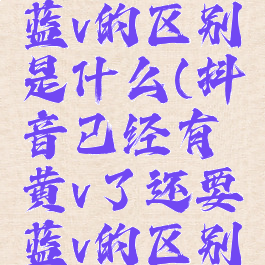 蓝v的区别
是什么(抖
音已经有
黄v了还要
蓝v的区别